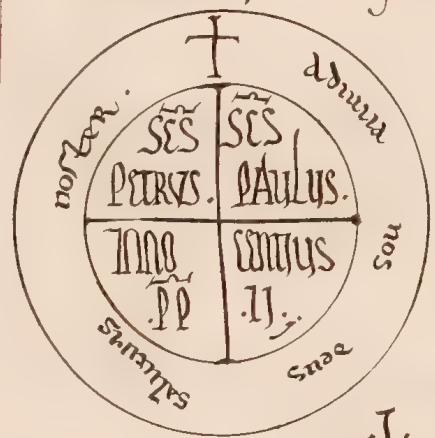 ✝ adiuua nos deus salutaris noster.
SCS SCS
PETRUS. PAULUS.
INNO CENTIUS
.PP .II.